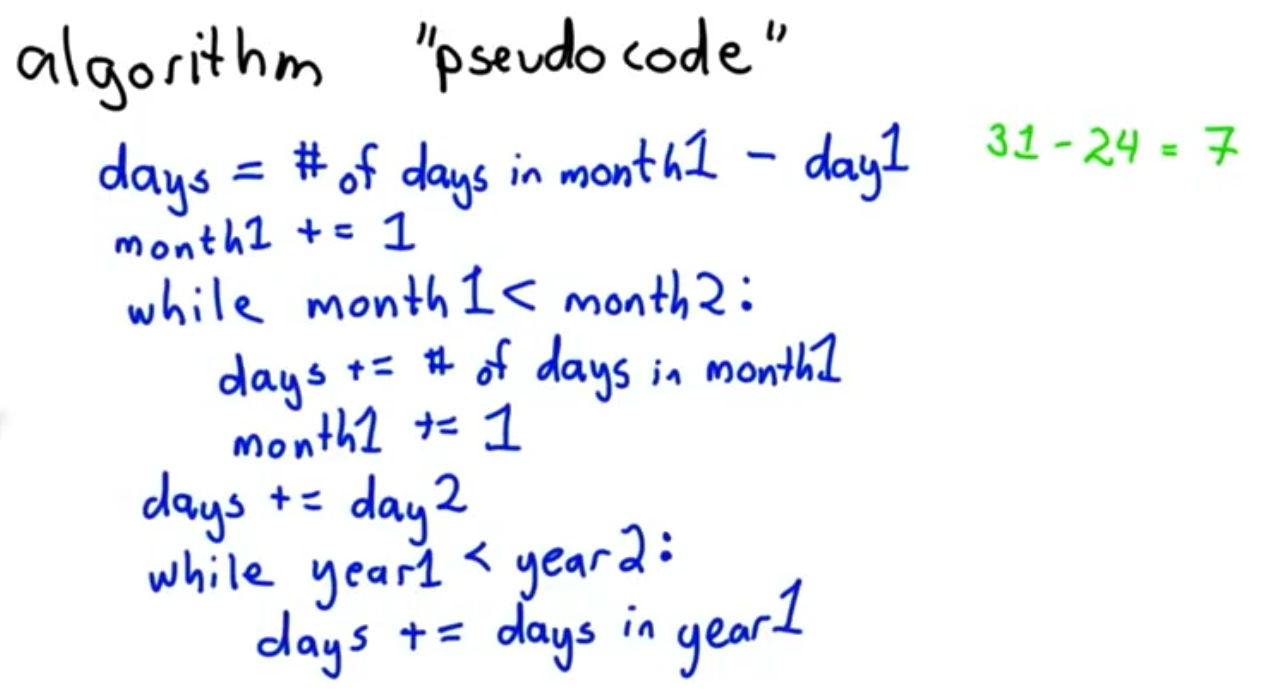 algorithm "pseudocode"
days = # of days in month1 - day1 31 - 24 = 7
month1 += 1
while month1 < month2:
days += # of days in month1
month1 += 1
days += day2
while year1 < year2:
days += days in year1